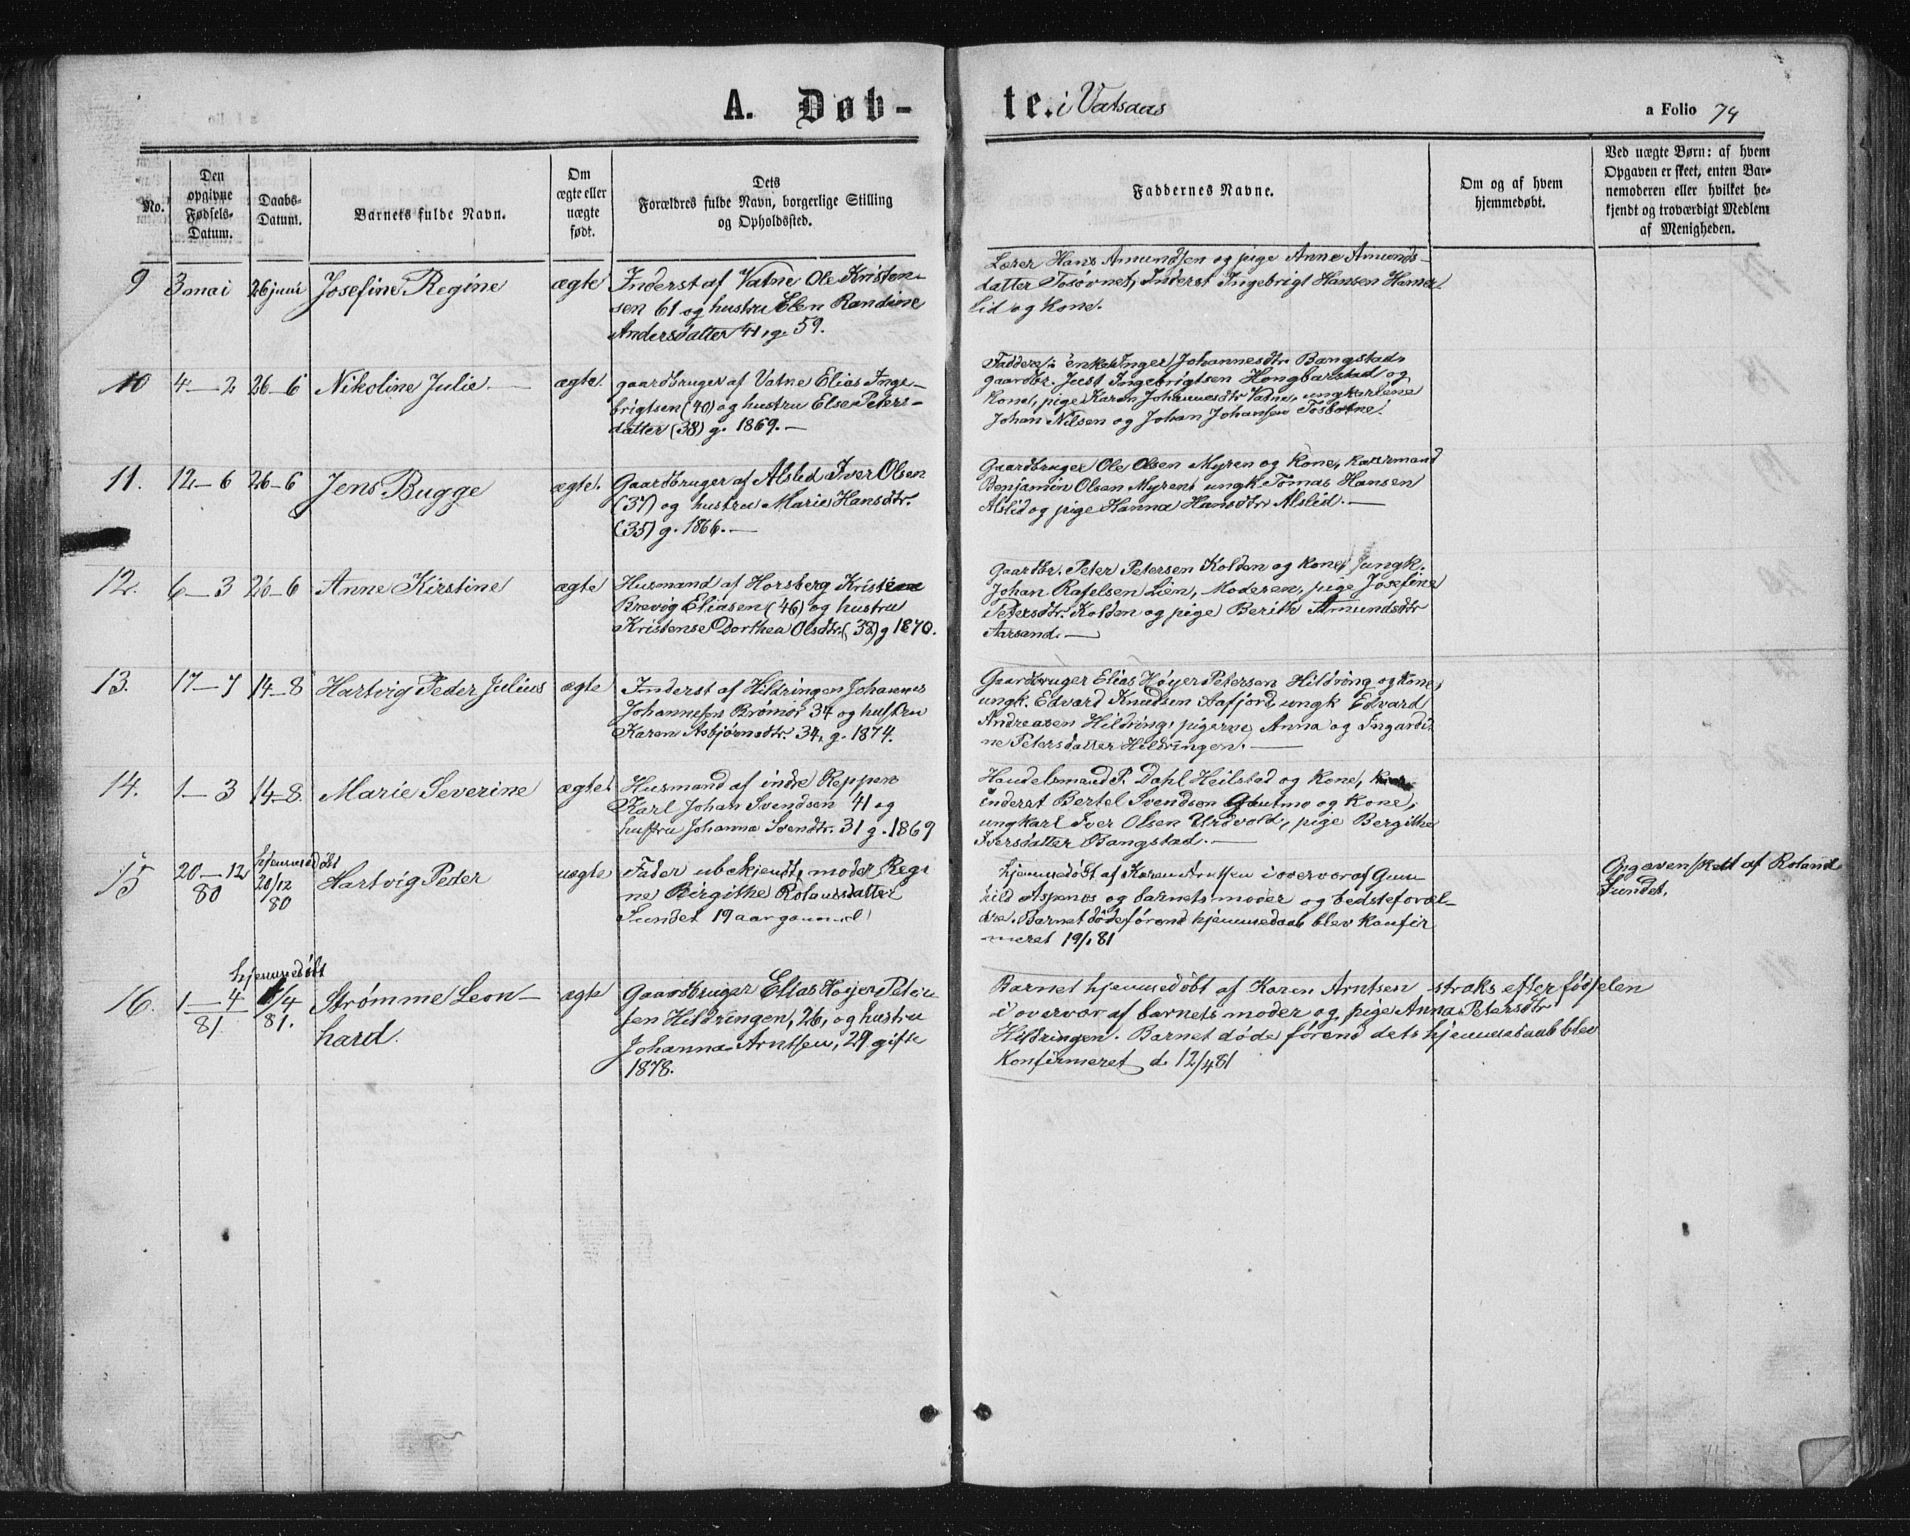 A. Døb-
te. i Vatsaas
a Folio 74
No.
Den
opgivne
Fødsels-
Datum.
Daabs-
Datum.
Barnets fulde Navn.
Om
ægte eller
uægte
født.
Dets
Forældres fulde Navn, borgerlige Stilling
og Opholdssted.
Faddernes Navne.
Om og af hvem
hjemmedøbt.
Ved uægte Børn: af hvem
Opgaven er skeet, enten Bar-
nemoderen eller hvilket be-
kjendt og troværdigt Medlem
af Menigheden.
9 3 mai 26 juni Josefine Regine ægte
Inderst af Vatne Ole Kristen-
sen 61 og hustru Elen Randine
Andersdatter 41, g. 59.
Lærer Hans Amundsen og pige Anne Amunds-
datter Tosøvnet, Inderst Ingebrigt Hansen Hamer-
lid og Kone.
10 4–2 26–6 Nikoline Julie. ægte.
gaardbruger af Vatne Elias Inge-
brigtsen (40) og hustru Else Peters-
datter (38) g. 1869.
Faddere: enke Inger Johannesdtr. Bangstad,
gaardbr. Just Ingebrigtsen Hongbarstad og
Kone, pige Karen Johannesdtr Vatne, ungkarlene
Johan Nilsen og Johan Johansen Tosbotne.
11. 12–6 26–6 Jens Bugge ægte.
Gaardbruger af Alslid Iver Olsen
(37) og hustru Marie Hansdtr.
(35) g. 1866.
Gaardbruger Ole Olsen Myren og Kone, Kaarmand
Benjamin Olsen Myren, ungk. Tomas Hansen
Alslid og pige Hanna Hansdtr Alslid.
12. 6–3 26–6 Anne Kirstine ægte
Husmand af Horsberg Kristian
Brevig Eliasen (46) og hustru
Kristense Dorthea Olsdtr. (38) g 1870.
Gaardbr. Peter Petersen Kolden og Kone, ungk.
Johan Rafelsen Lien, Moderen, pige Josefine
Petersdtr. Kolden og pige Berith Amundsdtr
Aarsand.
13. 17–7 14–8 Hartvig Peder Julius ægte
Inderst af Hildringen Johannes
Johannesen Brømor 34 og hustru
Karen Asbjørnsdtr. 34, g. 1874.
Gaardbruger Elias Høyer Petersen Hildring og Kone,
ungk. Edvard Knudsen Aafjord, ungk Edvard
Andreasen Hildring, pigerne Anna og Ingardi-
ne Petersdatter Hildringen.
14. 1–3 14–8. Marie Severine ægte.
Husmand af indre Reppen
Karl Johan Svendsen 41 og
hustru Johanna Svendtr. 31 g. 1869
Handelsmand P. Dahl Heilstad og Kone,
inderst Bertel Svendsen Gautmo og Kone,
ungkarl Iver Olsen Urdvold, pige Bergithe
Iversdatter Bangstad.
15 20–12
80
hjemmedøbt
20/12
80
Hartvig Peder uægte
Fader ubekjendt, moder Regi
ne Birgithe Rolansdatter
Sundet 19 aar gammel
Hjemmedøbt af Karen Arntsen i overvær af Gun
hild Aspenos og barnets moder og bedsteforæl-
dre. Barnet døde førend hjemmedaab blev Konfir
meret 19/1 81
Opgaven skett af Roland
Sundet.
16. 1–4
81
hjemmedøbt
1/4
81.
Strømme Leon-
hard.
ægte
Gaardbruger Elias Høyer Peter
sen Hildringen, 26, og hustru
Johanna Arntsen, 29 gifte
1878.
Barnet hjemmedøbt af Karen Arntsen straks efter fødselen
i overvær af barnets moder og pige Anna Petersdtr
Hildringen. Barnet døde førend dets hjemmedaab blev
Konfirmeret d. 12/4 81